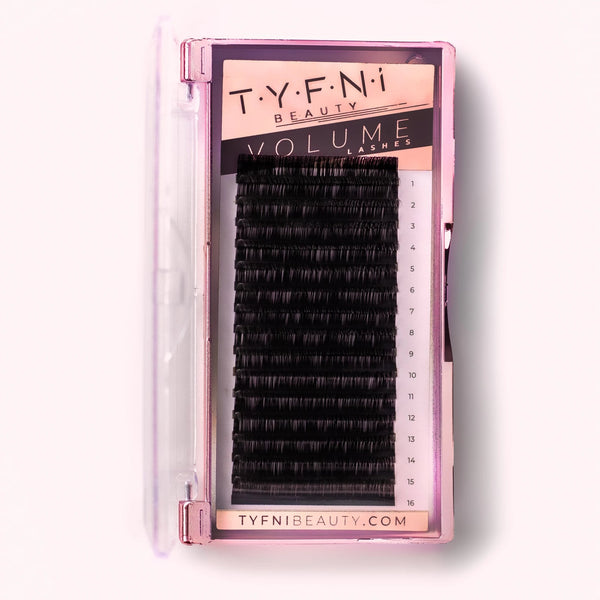 T·Y·F·N·i
BEAUTY
VOLUME
LASHES
1
2
3
4
5
6
7
8
9
10
11
12
13
14
15
16
TYFNIBEAUTY.COM